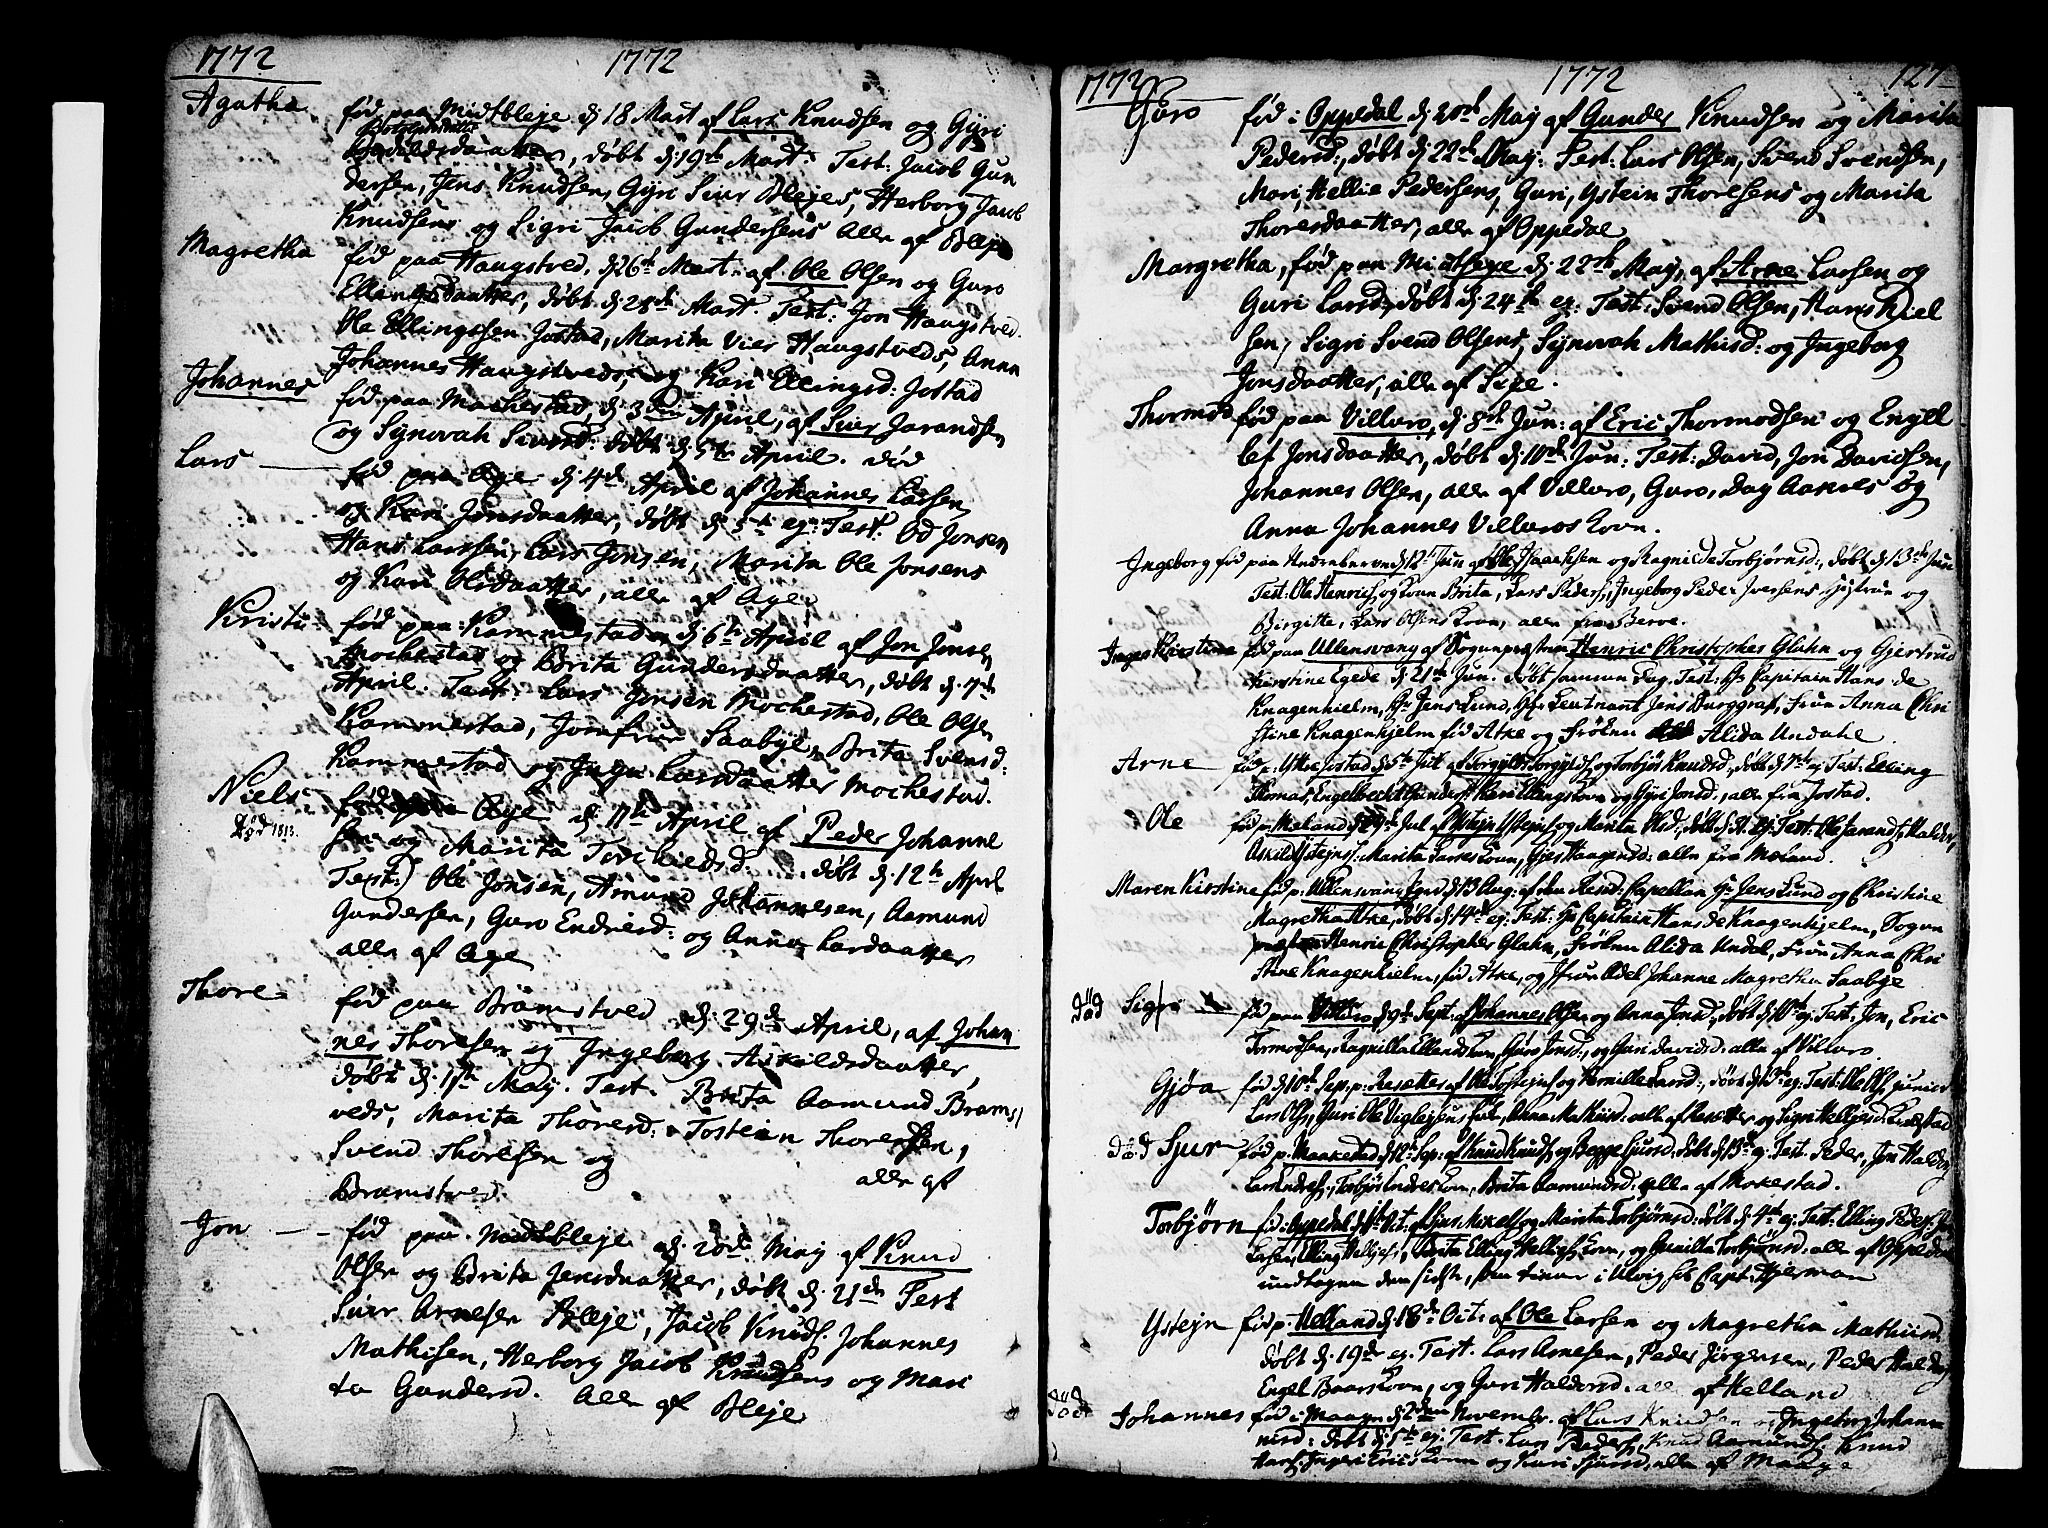 1772 1772
Agatha fød paa Midtbleje d 18 Mart af Lars Knudsen og Gyri
døbt d 19de Mart. Test: Jacob Gun
dersen, Jens Knudsen, Gyri Siur Blejes, Herborg Jacob
Knudsens og Sigri Jacob Gundersens Alle af Bleje
Magretha fød paa Haugstved, d 26de Mart. af Ole Olsen og Guro
Ellingsdaatter, døbt d 28de Mart. Test: Jon Haugstved.
Ole Ellingssen Jostad, Marita Vier Haugstveds, Anna
Johannes Haugstveds, og Kari Ellingsd: Jostad
Johannes fød paa Mochestad, d 3de April, af Siur Jarandsen
og Synovah Siursd: døbt d 5te April. død
Lars fød paa Age d 4de April af Johannes Larsen
og Kari Jonsdaatter, døbt d 5te ej: Test: Od Jonsen
Hans Larssen, Lars Jonsen, Marita Ole Jonsens
og Kari Olsdaatter, alle af Age
Kristi fød paa Kammestad d 6te April af Jon Jonsen
Mochestad og Brita Gundersdaatter, døbt d 7de
April. Test: Lars Jonsen Mochestad, Ole Olsen
Kammestad, Jomfrue Saabye, Brita Svensd:
Kammestad og Inga Larsdaatter Mochestad.
Niels fød paa Age d 11te April af Peder Johanne
død 1813. sen og Marita Torchieldsd: døbt d 12te April
Test: Ole Jonsen, Amund Johannesen, Aamund
Gundersen, Guro Endresd: og Anna Larsdaatter
alle af Age
Thore fød paa Bramstved d 29de April, af Johan
nes Thoresen og Ingeborg Askildsdaatter
døbt d 1ste May. Test. Brita Aamund Brams
veds, Marita Thoresd: Tostein Thoresen,
Svend Thoresen og alle af
Bramstved.
Jon fød paa Midtbleje d 20de May af Knud
Olsen og Brita Jensdaatter, døbt d 21de Test
Siur Arnesen Bleje, Jacob Knuds. Johannes
Mathisen, Herborg Jacob Knudsens og Mari
ta Gundersd. Alle af Bleje
1772 1772 127
Guro fød i Oppedal d 20de May af Gunder Knudsen og Marita
Pedersd:, døbt d 22de May: Test: Lars Olsen, Svend Svendsen,
Mari, Hellie Pedersens, Guri, Ystein Thoresens og Marita
Thoresdaatter, alle af Oppedal
Margretha, fød paa Midtsexe d 22de May, af Arne Larsen og
Guri Larsd, døbt d 24de ej: Test: Svend Olsen, Hans Kiel
sen, Sigri Svend Olsens, Synovah Mathisd: og Ingeborg
Jonsdaatter, alle af Sexe.
Thormod fød paa Villuro, d 8de Jun: af Eric Thormodsen og Engel
lef Jonsdaatter, døbt d 10de Jun: Test: David, Jon Davidsen,
Johannes Olsen, alle af Villuro, Guro, Dag Aanes og
Anna Johannes Villuros Kovn.
Ingeborg fød paa d 12te Jun af Ole Isaaksen og Ragnilde Torbjørnsd:, døbt d 13de Jun
Test: Ole Henrichs. og Kovn Brita, Lars Peders, Ingeborg Peder Iversens og
Birgitte, Lars Olsens Kovn, alle fra Berve.
Inger Kirstine fød paa Ullensvang af Sognepræsten Henric Christopher Glahn og Gjertrud
Kirstine Egede d 21de Jun. døbt samme Dag. Test: Hr Capitain Hans de
Knagenhielm, Hr Jens Lund, Hr Leutnant Jens Burggraf, Frue Anna Chri
stine Knagenhjelm fød Atke og Frøken Alida Undahl.
Arne fød p. Ytre Jostad d 5te Jul af Torgyls Torgylsen og Torbjør Knudsd., døbt d 7de ej Test: Elling
Thomas, Engelbrecht Gunders. Kari Ellings Kovn og Gyri Jonsd., alle fra Jostad.
Ole fød p. Mæland d 29de Jul af Ystejn Ystejns. og Marita Olsd., døbt d 31. ej. Test. Ole Jarands. Halder,
Askild Ystejns. Marita Larses Kovn, Haagensd: alle fra Mæland.
Maren Kirstine fød p. Ullensvang d 13 Aug: af den Resid: Capellan Hr Jens Lund og Christine
Magretha Atke, døbt d 14de ej: Test: Hr Capitain Hans de Knagenhjelm, Sogne
præsten Henric Christopher Glahn, Frøken Alida Undal, Frue Anna Chri
stine Knagenhielm, fød Atke, og Jfrue Edel Johanne Magretha Saabye
død Sigri fød paa Villuro d 9de Sept: af Johannes Olsen og Anna Jonsd:, døbt d 10de ej: Test: Jon, Eric
Tormodsen, Ragnilla Ellends Kon, Guro Jonsd., og Guri Davidsd. alle af Villuro.
Gjøa fød d 10de Sep. p. Rosetter af Ole Tostejns. og Pernille Larsd:, døbt d 13de ej: Test: Ole Ols. junior
Lars Ols, Guri Ole Anna Mathisd: alle af Rosetter og Sigri Helljesd:
død Sjur fød p. Maakestad d 12te Sep. af Knud Knuds. og Begge Sjursd, døbt d 13de ej. Test. Peder, Jon Haldor,
Lars Endres., Torbjør Endres Kovn, Brita Aamundsd: alle af Mokestad.
Torbjørn fød i Oppedal d 1te Oct. af Sjur Mikels. og Marita Torbjørnsd: døbt d 4de ej. Test: Elling Peders.
Larsen, Elling Helljes., Brita Elling Helljes Kovn, og Gunilla Torbjørnsd. alle af Oppedal
undtagen den sidste, som tiener i Ulvig hos Capt. Hjerman
Ystejn fød p. Helland d 18de Oct: af Ole Larsen og Magretha Mathisd.
døbt d 19de ej. Test. Lars Arnesen, Peder Jørgensen, Peder Haldors.
Engel Baars Kovn, og Guri Haldorsd. alle af Helland
død Johannes fød i Maagen d 2den November. af Lars Knudsen og Ingeborg Johan
nesd: døbt d 5te ej. Test. Lars Peders, Knud Aamunds. Knud
Hans. Inger Erics Kovn og Kari Sjursd, alle af Maage